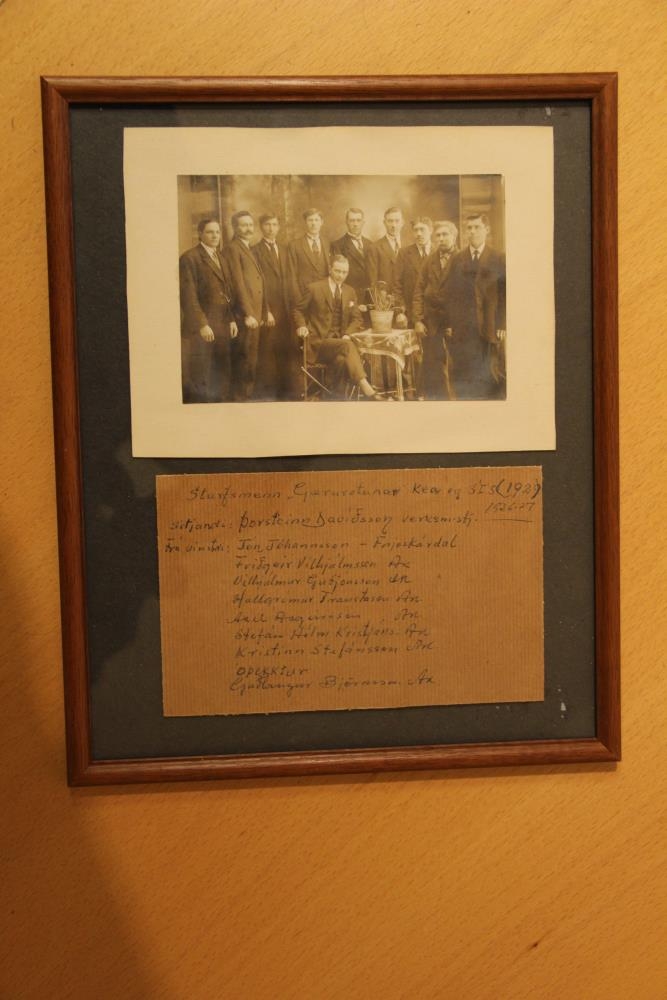 Starfsmenn Gærurotunar Kea og SÍS (192?)
1926-27
Sitjandi: Þorsteinn Davíðsson verksmstj.
Frá vinstri: Jón Jóhannsson - Fnjóskárdal
Friðgeir Vilhjálmsson Ak
Vilhjálmur Guðjónsson Ak
Hallgrímur Traustason Ak
Axel Ásgeirsson Ak
Stefán Hólm Kristjáns. Ak
Kristinn Stefánsson Ak
óþekktur
Guðlaugur Björnsson Ak